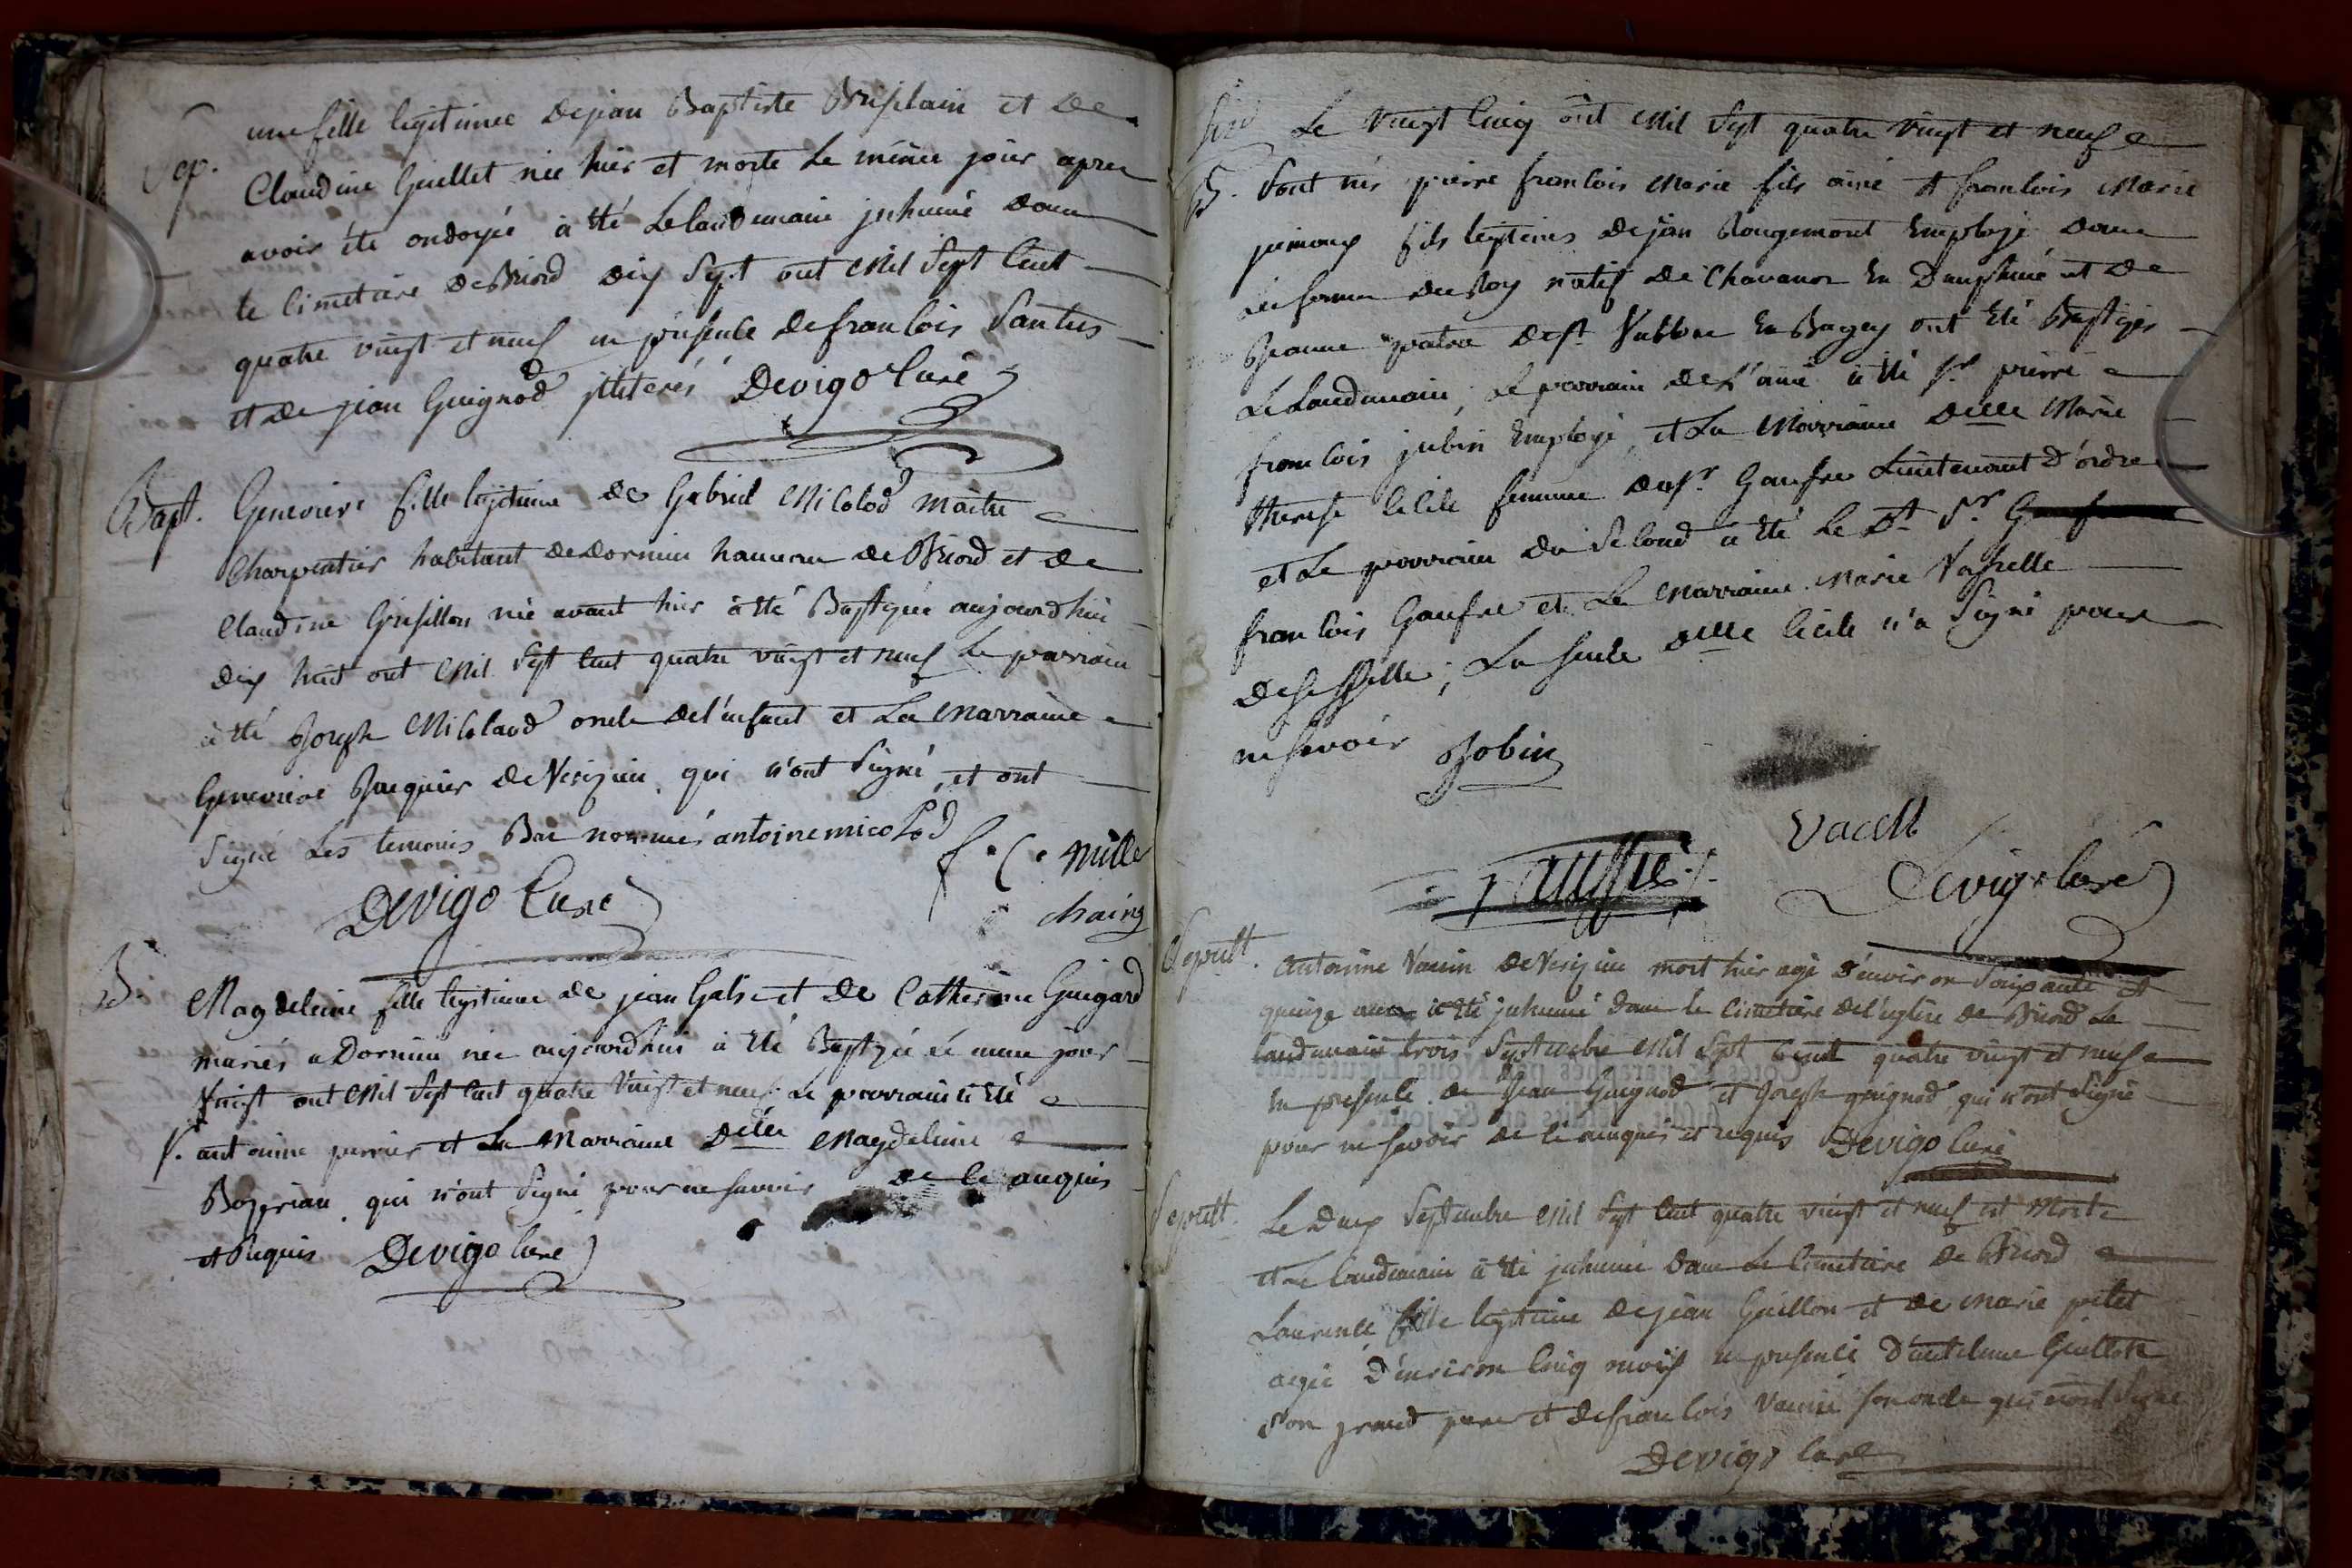 Sep. une fille legitimee dejean Baptiste Brisselain et de
Claudine Guillet née hier et morte Le même jour apres
avoir été ondoyée à été Lelandemain inhumé dans
le Cimetiere deBriord dix Sept out Mil Sept Cent
quatre vingt et neuf en presence defrancois Santus
et de jean Guignod illiterés Devigo Curé
Bapt. Genevieve fille legitime de Gabriel Micolod maitre
Charpentier habitant de dornieu hameau de Briord et de
Claudine Grisillon née avant hier à été Baptizée aujourdhui
dix huit out Mil Sept Cent quatre vingt et neuf Le parrain
à été Joseph Micoland oncle del'enfant et La Marraine
Genevieve Juquier de Verizieu qui n'ont Signé, et ont
Signé Les temoins Bas nommés antoine micolod
f. C. mille
Devigo Curé
chaing
B. Magdeleine fille legitime de jean Galse et de Catherine Guigard
mariés a Dornieu née aujourdhui à été Baptizée Le même jour
Vingt out Mil Sept Cent quatre Vingt et neuf Le parrain à été
S. antoine perrier et La Marraine Delle Magdeleine
Bozprian qui n'ont Signé pour ne savoir de ce enquis
et Requis Devigo Curé
Le Vingt Cinq out Mil Sept quatre Vingt et neuf
B. Sont nés pierre francois Marie fils ainé et francois Marie
jumeaux fils legitimes dejean Rougemont Employé dans
Les fermes du Roy natif de Chavanoz En Dauphiné et de
Jeanne patra de st. Vulbas En Bugey ont été Baptizés
LeLandemain, Le parrain de L'ainé à été Sr. pierre
francois jubin Employé, et La Marraine Delle Marie
therese Cécile femme du Sr. Gaufre Lieutenant d'ordre
et Le parrain du Second a été Le dt. Sr.
francois Gaufre et La Marraine Marie Vachelle
; La seule Delle Cécile n'a Signé pour
ne Savoir Jobin
Vacelle
Gauffre
Devigo Curé
Sepult. Antoine Vannin de Verizieu mort hier agé d'environ Soixante et
quinze ans a été inhumé dans le Cimetiere del'eglise de Briord Le
landemain trois Septembre Mil Sept Cent quatre vingt et neuf
En presence de jean Guignod et Joseph guignod qui n'ont Signé
pour ne Savoir de Ce enquis et requis Devigo Curé
Sepult. Le Deux Septembre Mil Sept Cent quatre vingt et neuf est Morte
et Le Landemain à été inhumée dans Le Cimetiere de Briord
Laurence fille legitime dejean Guillon et de Marie petet
agée D'environ Cinq mois en presence D'antelme Guillon
Son grand pere et defrancois Vannie son oncle qui n'ont Signé
Devigo Curé